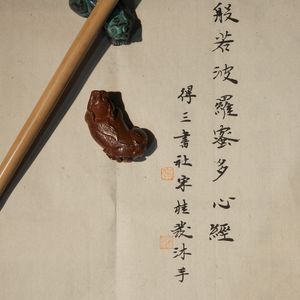 般若波羅蜜多心經
得三書社宋桂發沐手